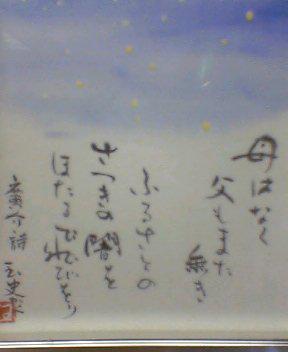 母はなく
父もまた
無き
ふるさとの
さつきの闇を
ほたる
廣介詩